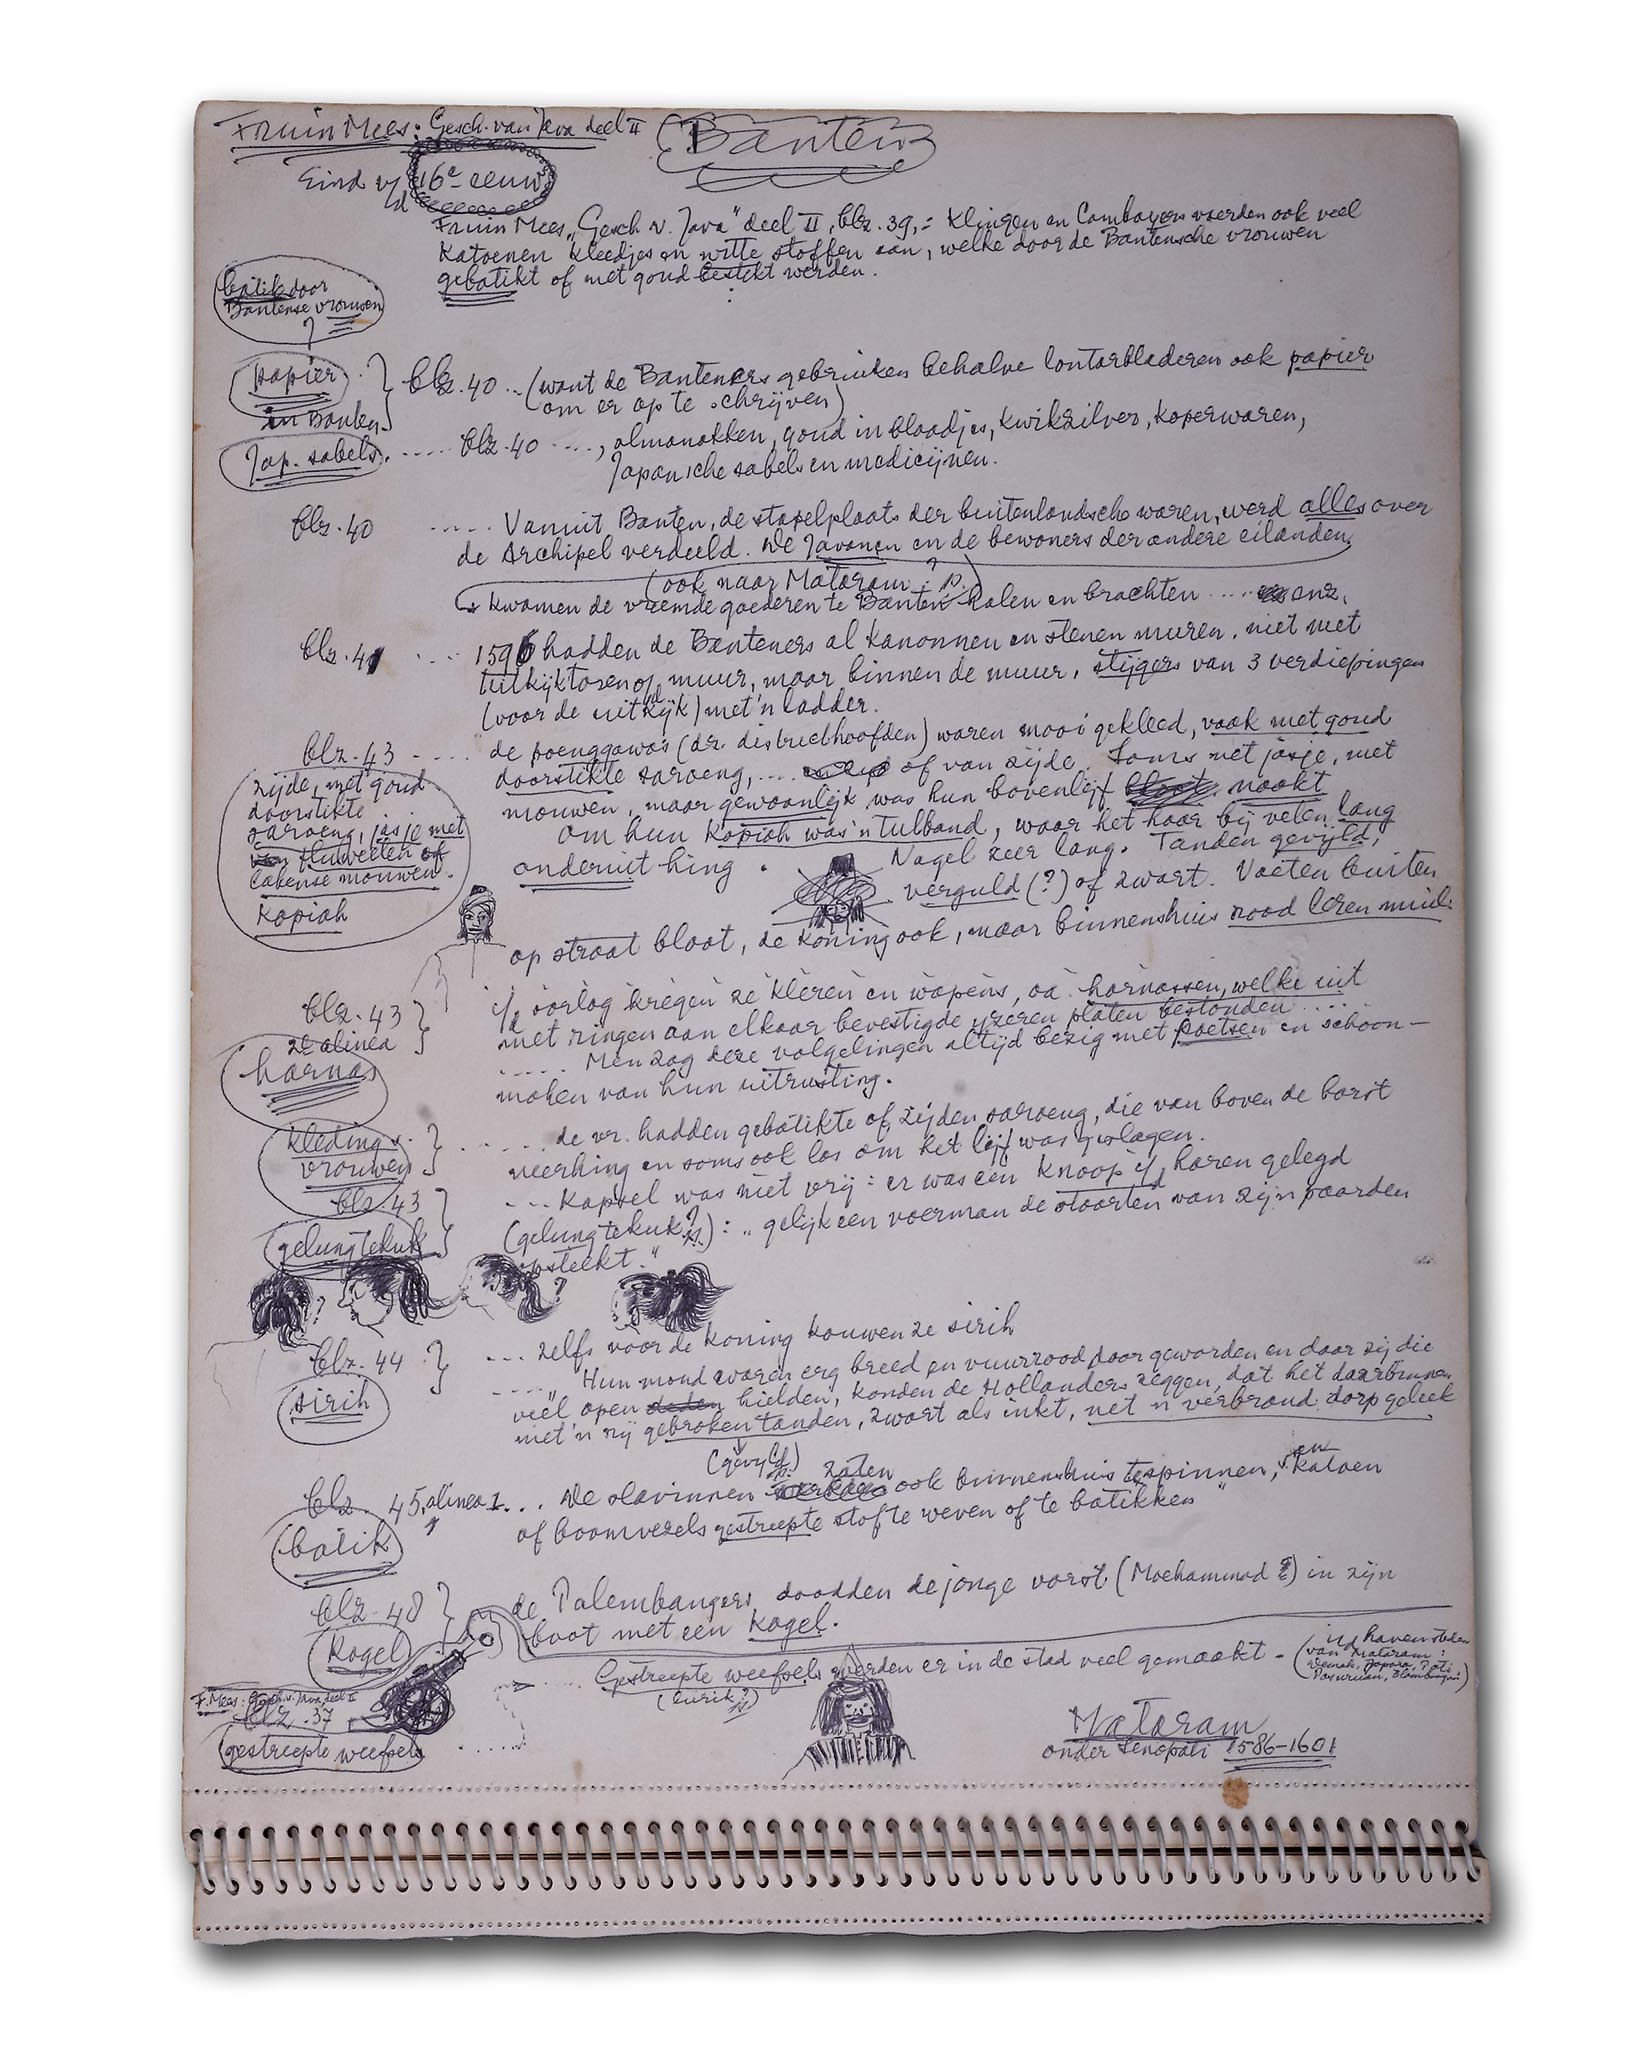 Fruin Mees: Gesch. van Java deel II
Banten
Eind v/d 16e eeuw
Fruin Mees „Gesch. v. Java" deel II, blz. 39,= Klingen en Cambayers voerden ook veel
katoenen kleedjes en witte stoffen aan, welke door de Bantensche vrouwen
gebatikt of met goud bestikt werden.
batik door
Bantense vrouwen
?
papier
in Banten
blz. 40 ... (want de Banteners gebruiken behalve lontarbladeren ook papier
om er op te schrijven)
Jap. sabels ..... blz. 40 ...., almanakken, goud in blaadjes, kwikzilver, koperwaren,
Japansche sabels en medicijnen.
blz. 40 ..... Vanuit Banten, de stapelplaats der buitenlandsche waren, werd alles over
de Archipel verdeeld. De Javanen en de bewoners der andere eilanden
(ook naar Mataram? p.)
kwamen de vreemde goederen te Banten halen en brachten ..... enz.
blz. 41 .... 1596 hadden de Banteners al kanonnen en stenen muren. niet met
uitkijktorens op muur, maar binnen de muur, stijgers van 3 verdiepingen
(voor de uitkijk) met 'n ladder.
blz. 43 ..... de poenggawa's (dz. districthoofden) waren mooi gekleed, vaak met goud
doorstikte saroeng, .... of van zijde. Soms met jasje, met
mouwen, maar gewoonlijk was hun bovenlijf bloot. naakt
om hun kopiah was 'n tulband, waar het haar bij velen lang
onderuit hing. Nagel zeer lang. Tanden gevijld,
verguld (?) of zwart. Voeten buiten
op straat bloot, de koning ook, maar binnenshuis rood leren muil.
zijde, met goud
doorstikte
saroeng, jasje met
fluweelen of
lakense mouwen.
kopiah
blz. 43
2e alinea
harnas
i/d oorlog kregen ze kleren en wapens, oa. harnassen, welke uit
met ringen aan elkaar bevestigde yzeren platen bestonden ...
..... Men zag deze volgelingen altijd bezig met poetsen en schoon-
maken van hun uitrusting.
kleding v.
vrouwen
blz. 43
..... de vr. hadden gebatikte of zijden saroeng, die van boven de borst
neerhing en soms ook los om het lijf was geslagen.
... Kapsel was niet vrij: er was een knoop i/d haren gelegd
gelung tekuk
(gelung tekuk?): „gelijk een voerman de staarten van zijn paarden
opsteekt."
?
?
blz. 44
sirih
... zelfs voor de koning kouwen ze sirih
..... „Hun mond waren erg breed en vuurrood door geworden en daar zij die
veel open hielden, konden de Hollanders zeggen, dat het daarbinnen
met 'n rij gebroken tanden, zwart als inkt, net 'n verbrand dorp geleek
(gevijld)
blz. 45, alinea 1... De slavinnen zaten ook binnenshuis te spinnen, en katoen
of boomvezels gestreepte stof te weven of te batikken"
batik
blz. 48
Kogel
de Palembangers doodden de jonge vorst (Moehammad ?) in zijn
boot met een kogel.
F. Mees: Gesch. v. Java, deel II
blz. 37
gestreepte weefsels
Gestreepte weefsels werden er in de stad veel gemaakt - (i/d havensteden
van Mataram:
Demak, Japara, Pati
Pasuruan, Blambangan)
(lurik?)
Mataram
onder Senopati 1586-1601